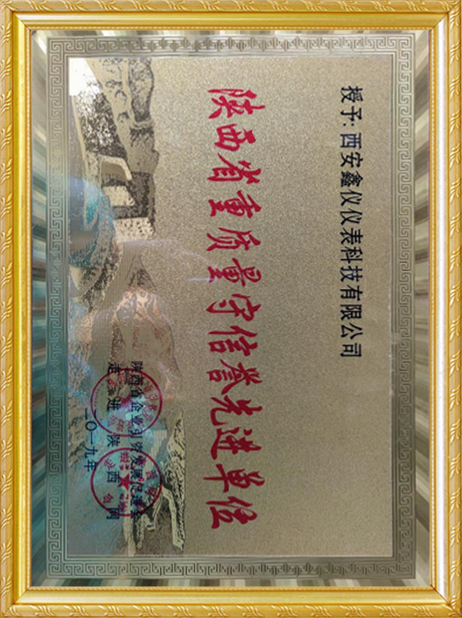 授予：西安鑫仪仪表科技有限公司
陕西省重质量守信誉先进单位
陕西省企业
走进陕西网
二〇一九年